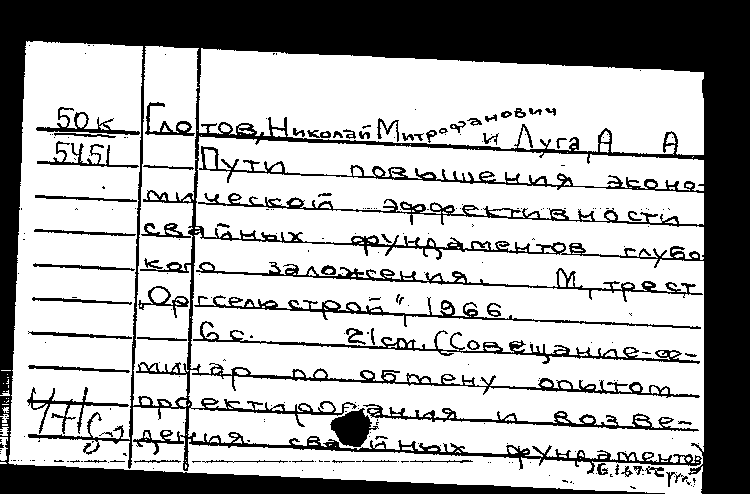 50к Глотов, Николай Митрофанович и Луга, А А
5451 Пути повышения эконо-
мической эффективности
свайных фундаментов глубо-
кого заложения. М., трест
„Оргсельстрой“, 1966.
6 с. 21 см. (Совещание-се-
минар по обмену опытом
проектирования и возве-
дения свайных фундаментов)